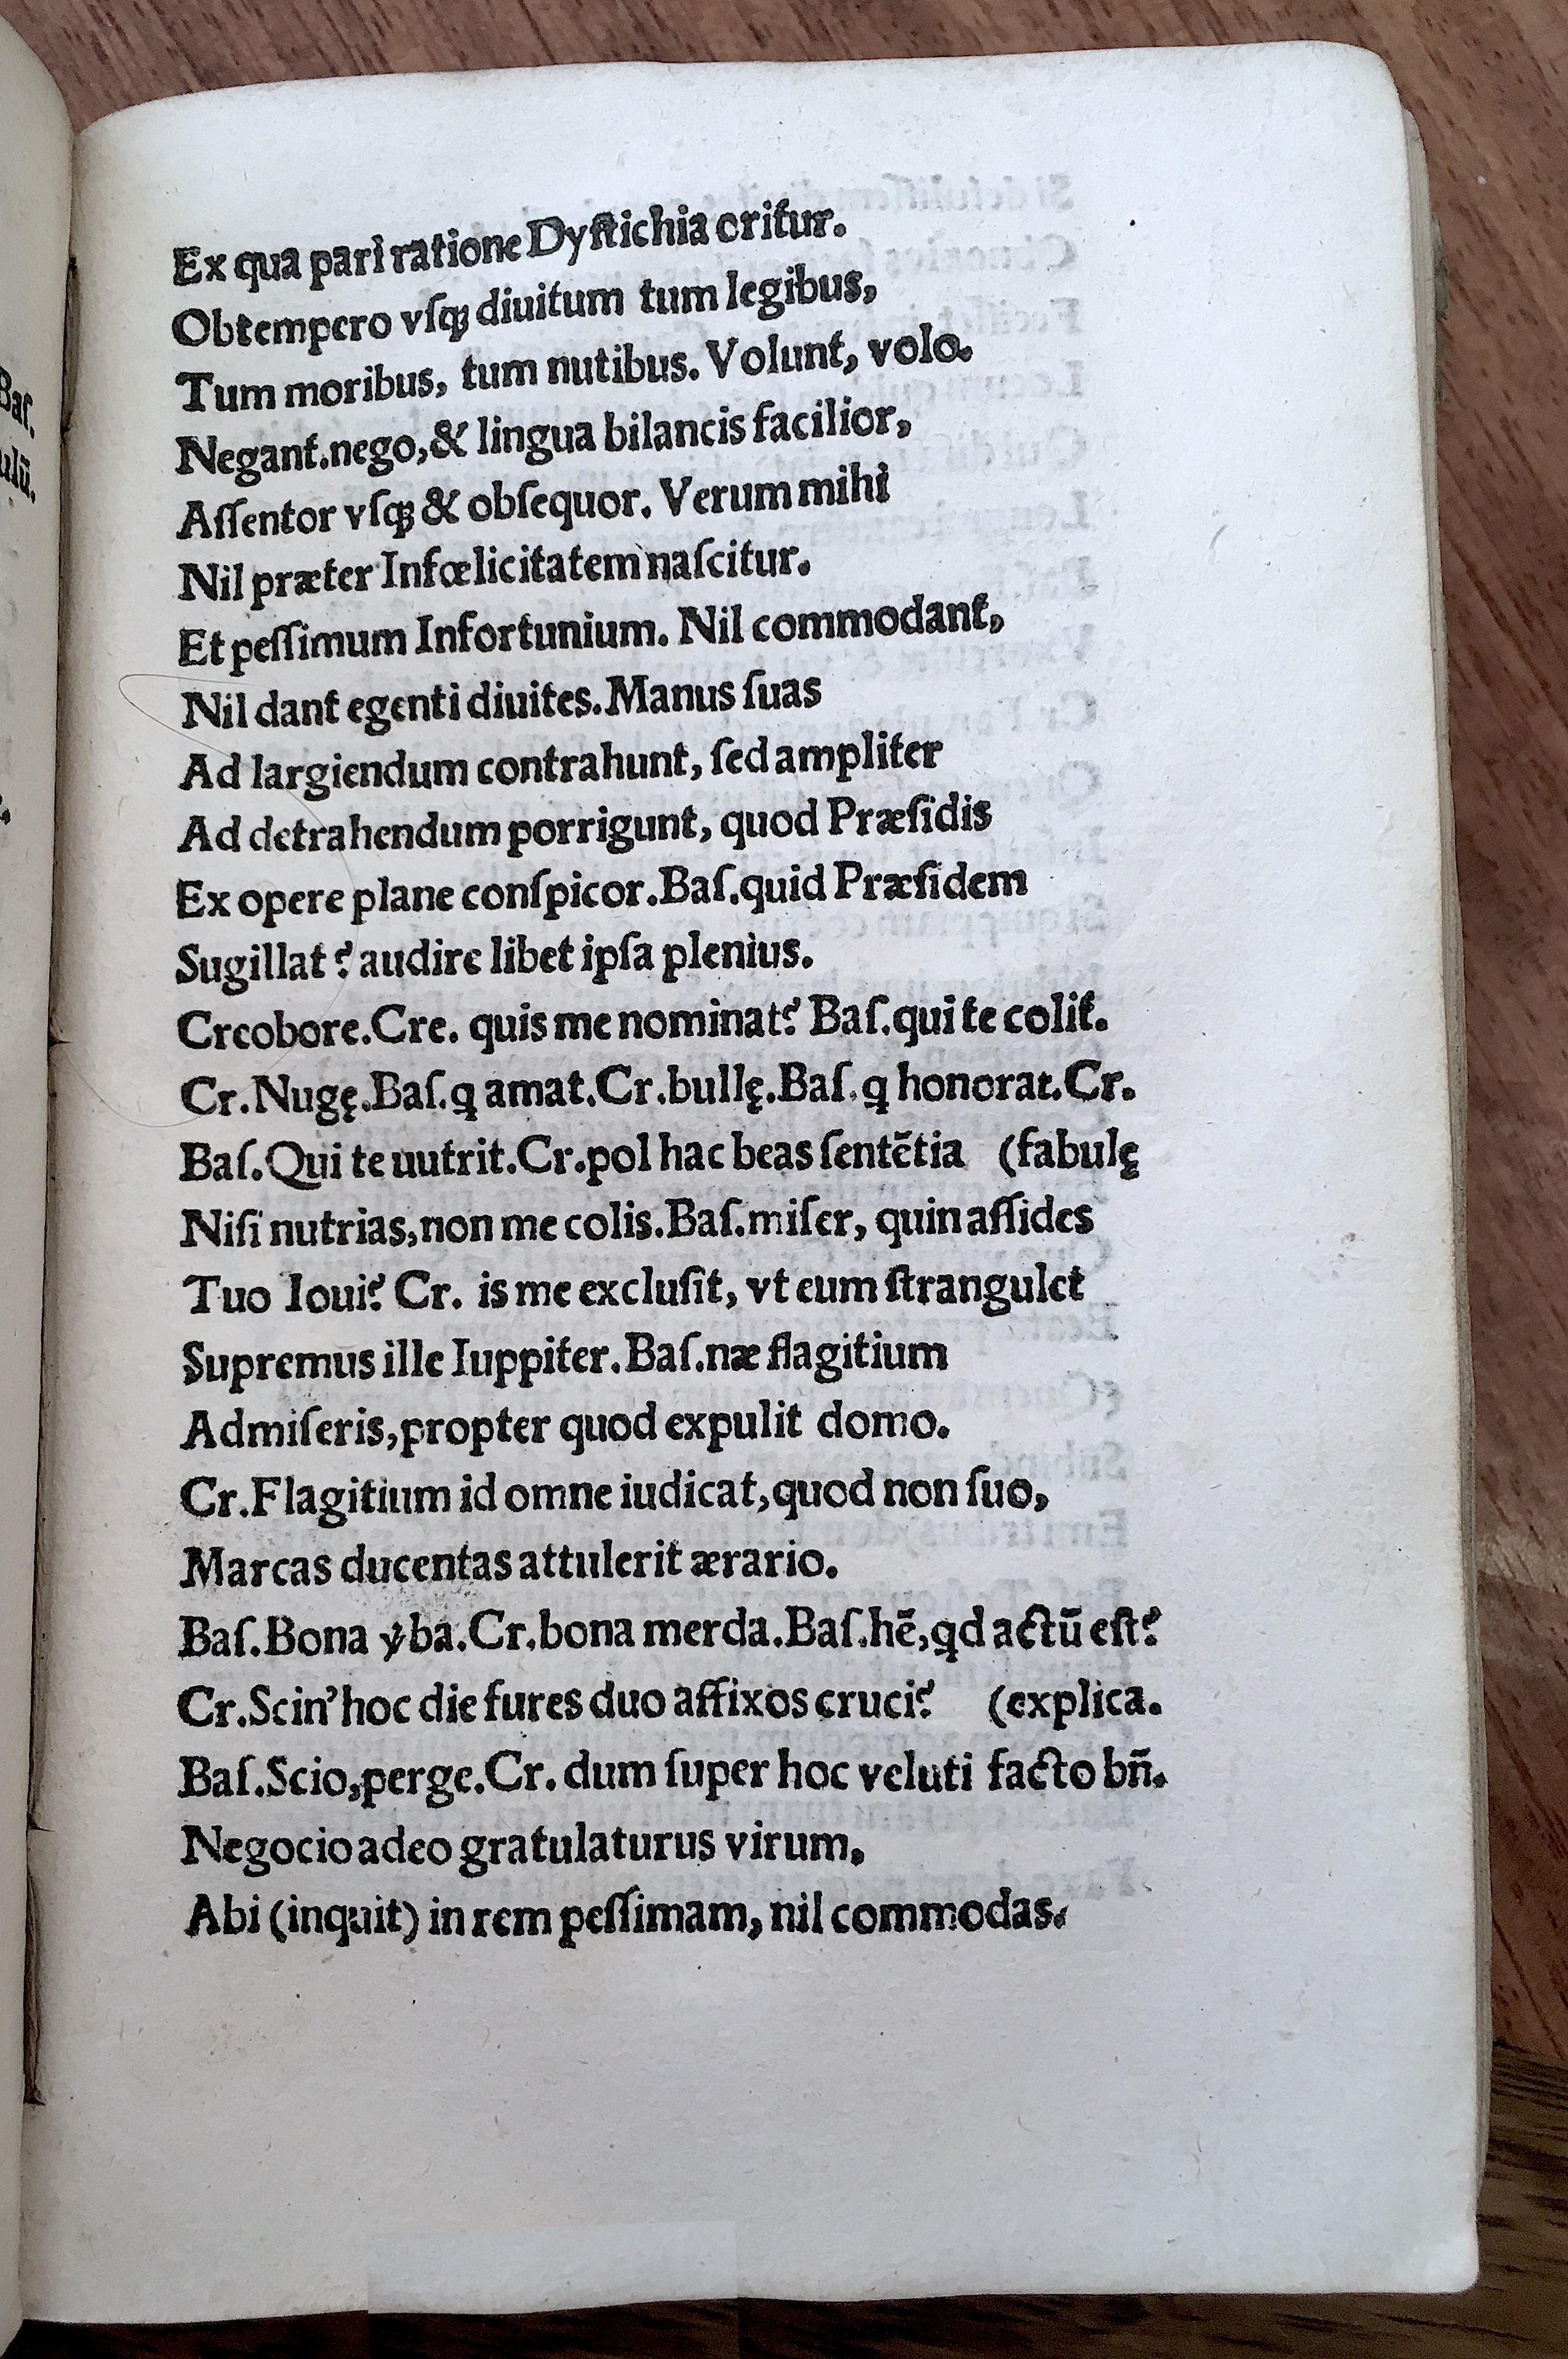 Baſ.
ulū.
Ex qua pari ratione Dyſtichia oritur.
Obtempero vſqꝫ diuitum tum legibus,
Tum moribus, tum nutibus. Volunt, volo.
Negant.nego,& lingua bilancis facilior,
Aſſentor vſqꝫ & obſequor. Verum mihi
Nil præter Infœlicitatem naſcitur.
Et peſſimum Infortunium. Nil commodant,
Nil dant egenti diuites.Manus ſuas
Ad largiendum contrahunt, ſed ampliter
Ad detrahendum porrigunt, quod Præſidis
Ex opere plane conſpicor.Baſ.quid Præſidem
Sugillat? audire libet ipſa plenius.
Creobore.Cre. quis me nominat? Baſ.qui te colit.
Cr.Nugę.Baſ.q amat.Cr.bullę.Baſ.q honorat.Cr.
Baſ.Qui te uutrit.Cr.pol hac beas ſentētia (fabulę
Niſi nutrias,non me colis.Baſ.miſer, quin aſſides
Tuo Ioui? Cr. is me excluſit, vt eum ſtrangulet
Supremus ille Iuppiter.Baſ.næ flagitium
Admiſeris,propter quod expulit domo.
Cr.Flagitium id omne iudicat,quod non ſuo,
Marcas ducentas attulerit ærario.
Baſ.Bona ꝟba.Cr.bona merda.Baſ.hē,qd actū eſt?
Cr.Scin’hoc die fures duo affixos cruci? (explica.
Baſ.Scio,perge.Cr. dum ſuper hoc veluti facto bñ.
Negocio adeo gratulaturus virum,
Abi (inquit) in rem peſſimam, nil commodas.